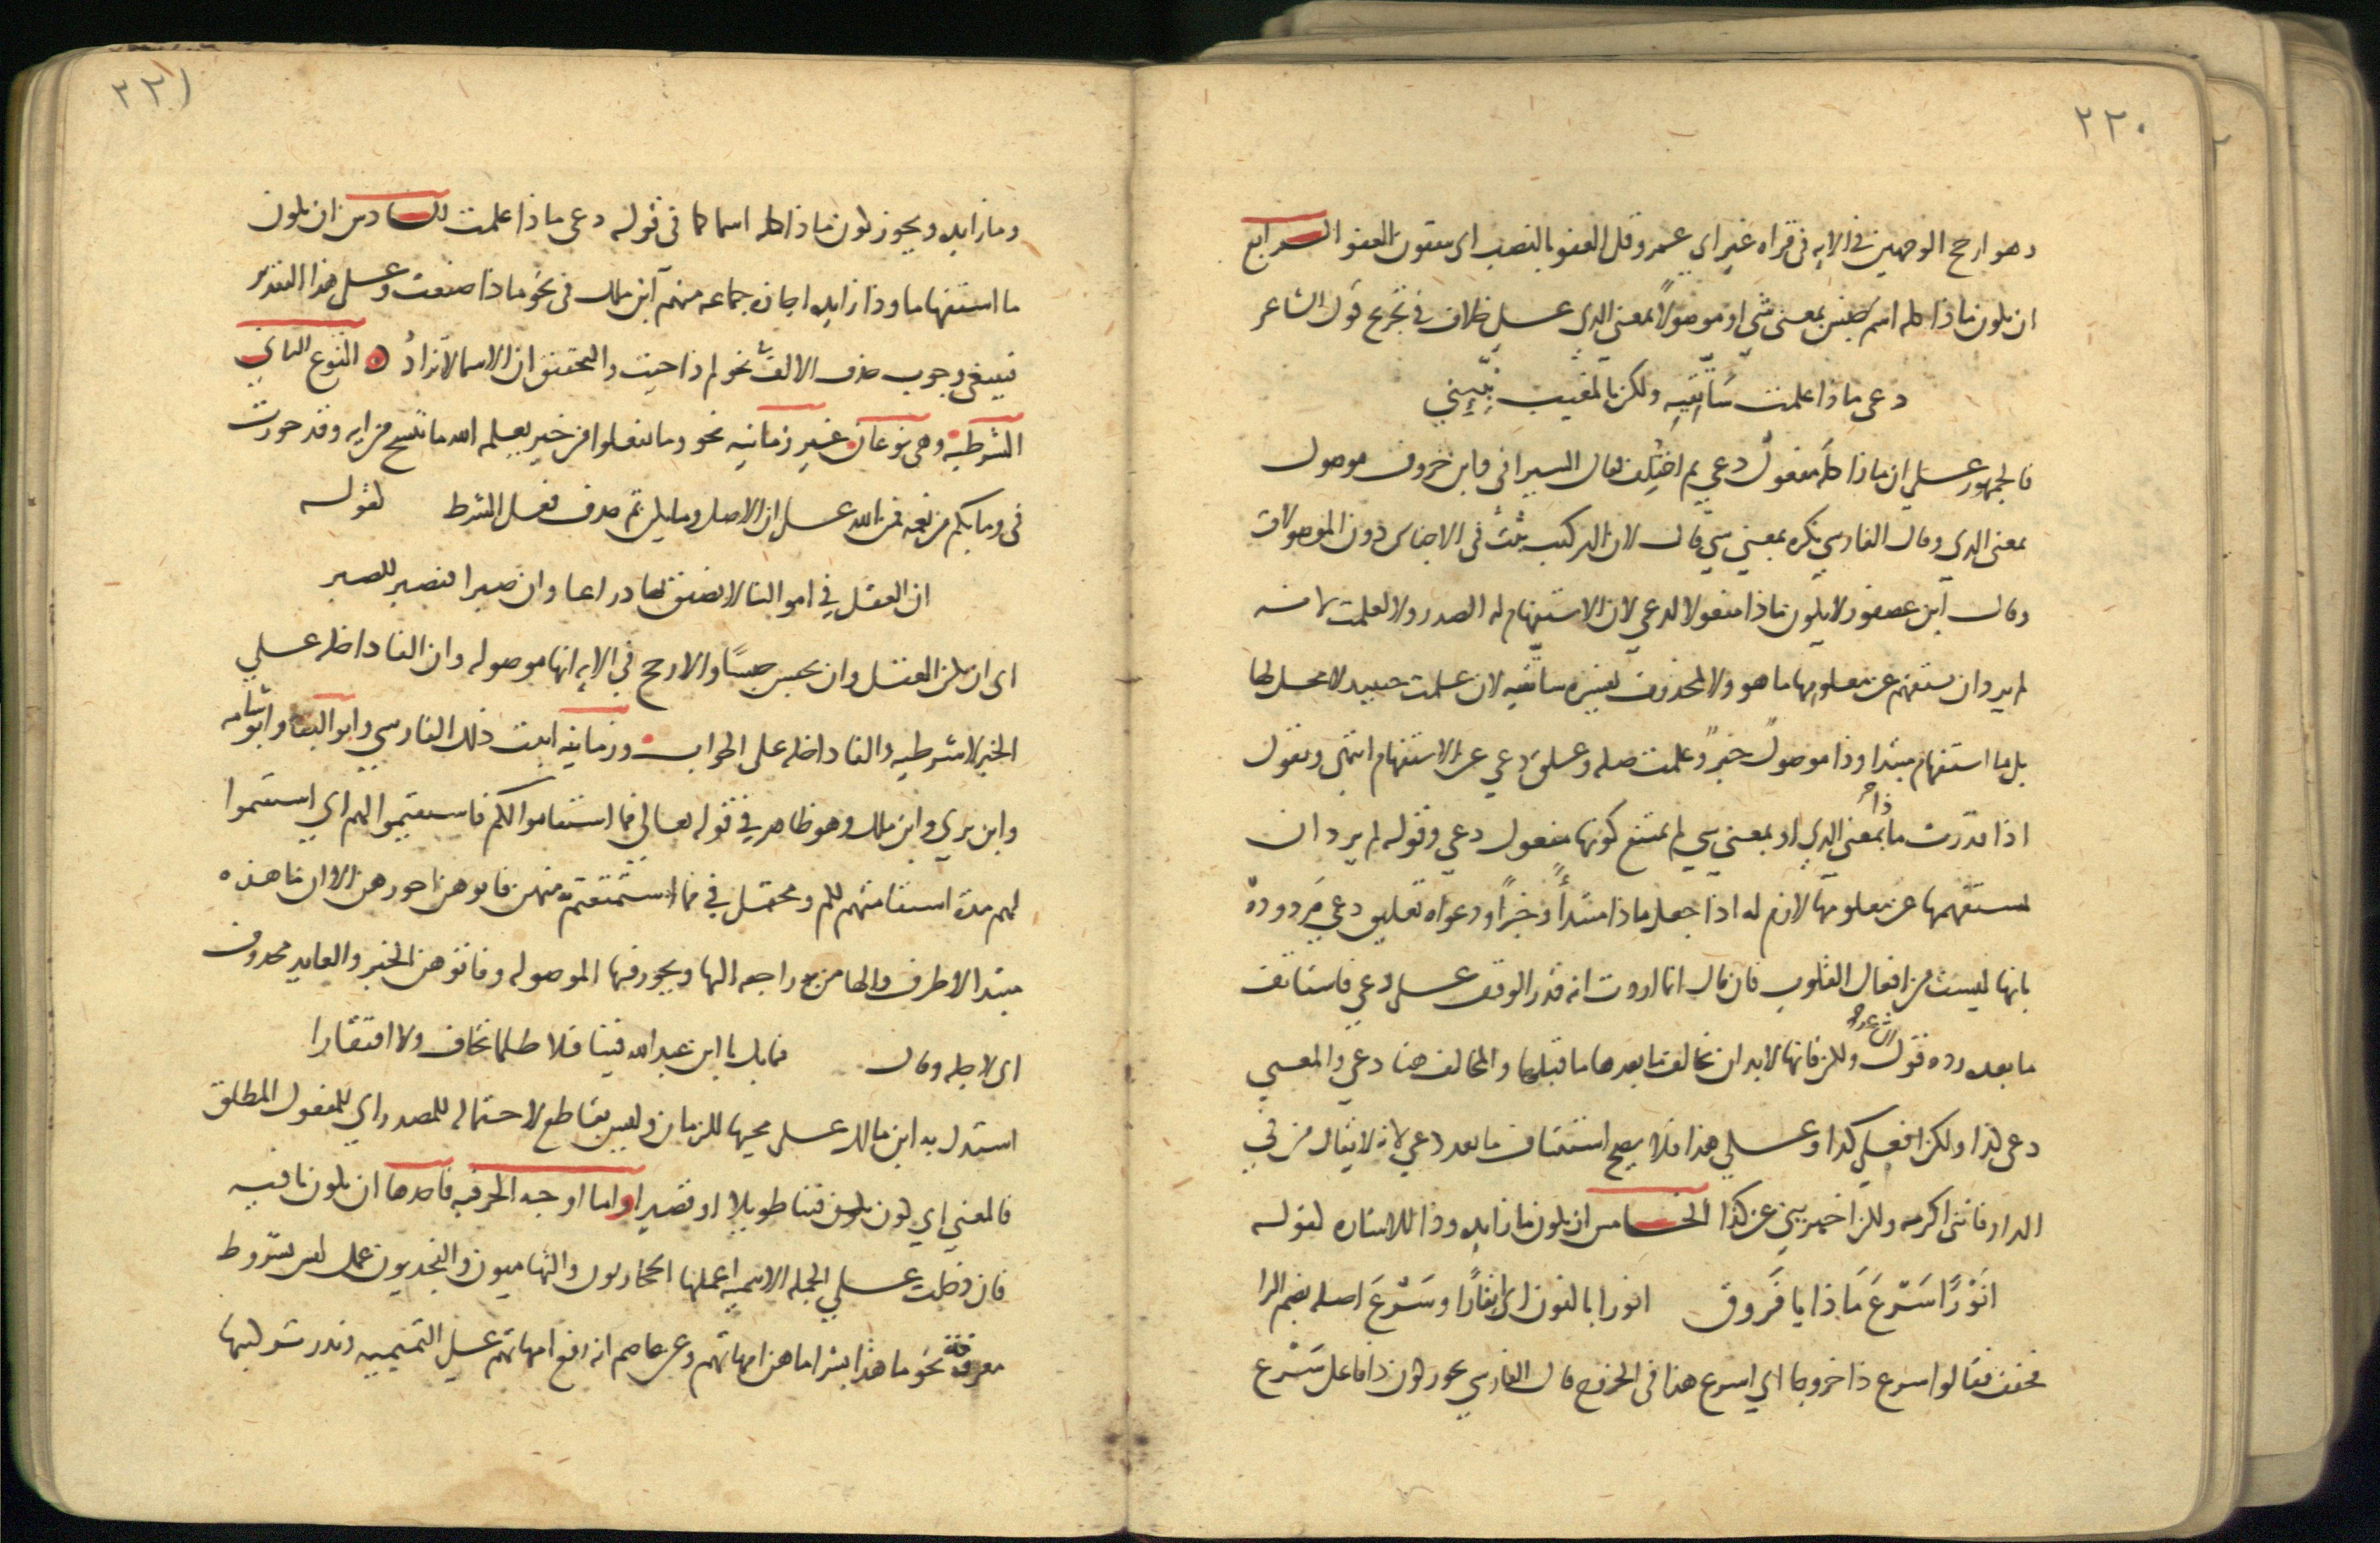 ٢٢٠
وهو ارجح الوجهين في الايه في قراه غير ابي عمرو قل العفو بالنصب اي ينفقون العفو الرابع
ان يكون ماذا كله اسم جنس بمعنى شي او موصولا بمعنى الذي على خلاف في تخريج قول الشاعر
دعي ماذا علمت سأتقيه ولكن بالمغيب نبّييني
فالجمهور على ان ماذا كله مفعول دعي ثم اختلف فقال السيرافي وابن خروف موصول
بمعنى الذي وقال الفارسي نكره بمعنى شي قال لان التركيب ثبت في الاجناس دون الموصولات
وقال ابن عصفور لا يكون ماذا مفعولا لدعي لان الاستفهام له الصدر ولا لعلمت لانه
لم يرد ان يستفهم عن معلومها ما هو ولا لمحذوف يفسره سأتقيه لان علمت حينيذ لا محل لها
بل ما استفهام مبتدا وذا موصول خبر وعلمت صله وعلق دعي عن الاستفهام انتهى ونقول
اذا قدرت ماذا بمعنى الذي او بمعنى شي لم يمتنع كونها مفعول دعي وقوله لم يرد ان
يستفهمها عن معلومها لازم له اذا جعل ماذا مبتدأ وخبرًا ودعواه تعليق دعي مردودة
بانها ليست من افعال القلوب فان قال انما اردت انه قدر الوقف على دعي فاستانف
ما بعده رده قول الشاعر ولكن فانها لا بد ان يخالف ما بعدها ما قبلها والمخالف هنا دعي والمعنى
دعي كذا ولكن افعلي كذا وعلى هذا فلا يصح استئناف ما بعد دعي لانه لا يقال من في
الدار فانني اكرمه ولكن اخبريني عن كذا الخامس ان يكون ما زايده وذا للاشاره كقوله
انَوْرًا سَرْعَ مَاذا يا فَروق انورا بالنون اي انفارًا وسَرْعَ اصله بضم الرا
فخفف يقال سرع ذا خروجا اي اسرع هذا في الخروج قال الفارسي يجوز كون ذا فاعل سَرْع
٢٢١
وما زايده ويجوز كون ماذا كله اسما كما في قوله دعي ماذا علمت السادس ان يكون
ما استفهاما وذا زايده اجازه جماعه منهم ابن ملك في نحو ماذا صنعت وعلى هذا التقدير
فينبغي وجوب حذف الالف في نحو لم ذا جيت والتحقيق ان الاسما لا تزاد النوع الثاني
الشرطيه وهي نوعان غير زمانيه نحو وما تفعلوا من خير يعلمه الله ما ننسخ من ايه وقد جوزت
في وما بكم من نعمه فمن الله على ان الاصل وما يكن ثم حذف فعل الشرط كقوله
ان العقل في اموالنا لا نضق بها ذراعا وان صبرا فنصبر للصبر
اي ان يكن العقل وان نحبس حبسًا والارجح في الايه انها موصوله وان الفا داخله على
الخبر لا شرطيه والفا داخله على الجواب وزمانيه اثبت ذلك الفارسي وابو البقا وابو شامه
وابن بري وابن ملك وهو ظاهر في قوله تعالى فما استقاموا لكم فاستقيموا لهم اي استقيموا
لهم مدة استقامتهم لكم ومحتمل في فما استمتعتم به منهن فاتوهن اجورهن الا ان ما هذه
مبتدا لا ظرف والها من به راجعه اليها ويجوز فيها الموصوله وفاتوهن الخبر والعايد محذوف
اي لاجله وقال فما يك يا ابن عبد الله فينا فلا ظلما نخاف ولا افتقارا
استدل به ابن مالك على مجيها للزمان وليس بقاطع لاحتماله للمصدر اي للمفعول المطلق
فالمعنى اي كون تكون فينا طويلا او قصيرا واما اوجه الحرفيه فاحدها ان يكون نافيه
فان دخلت على الجمله الاسميه اعملها الحجازيون والتهاميون والنجديون عمل ليس بشروط
معروفة نحو ما هذا بشرا ما هن امهاتهم وعن عاصم انه رفع امهاتهم على التميميه وندر تركيبها